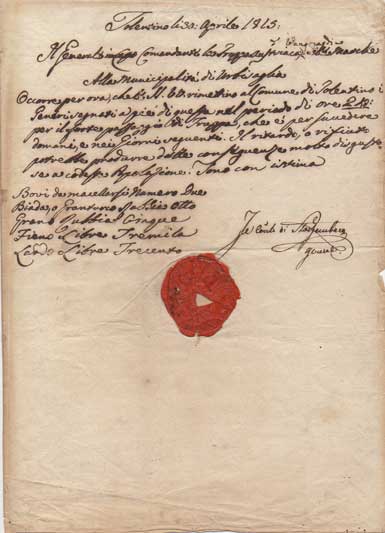 Tolentino li 30: Aprile 1815:
Il Generale in capo Comandante le Truppe Austriache nelle Marche
Alla Municipalità di Urbisaglia
Occorre per ora, che le SS. VV. rimettino al Comune di Tolentino i
Generi segnati a piè di questa nel periodo di ore 24:
per il forte passaggio di Truppa, che è per succedere
domani, e nei Giorni seguenti. Il ritardo, o rifiuto
potrebbe produrre delle conseguenze molto disgusto
se a codesta Popolazione. Sono con istima
Bovi da macellarsi Numero Due
Biada, o Granturco Rubbia Otto
Grano Rubbia Cinque
Fieno Libre Tremila
Lardo Libre Trecento
Le Comte di